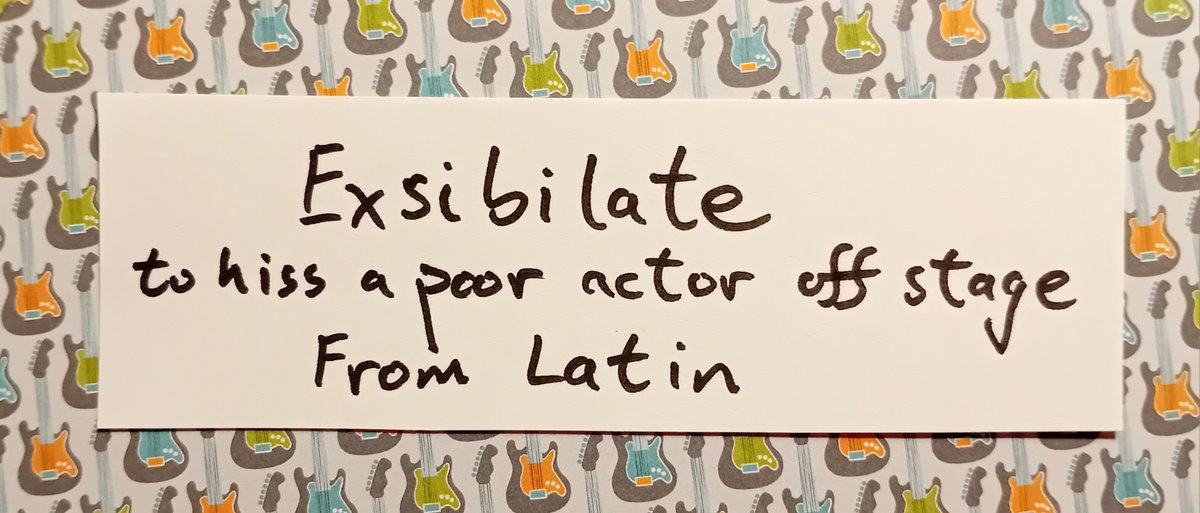 Exsibilate
to hiss a poor actor off stage
From Latin